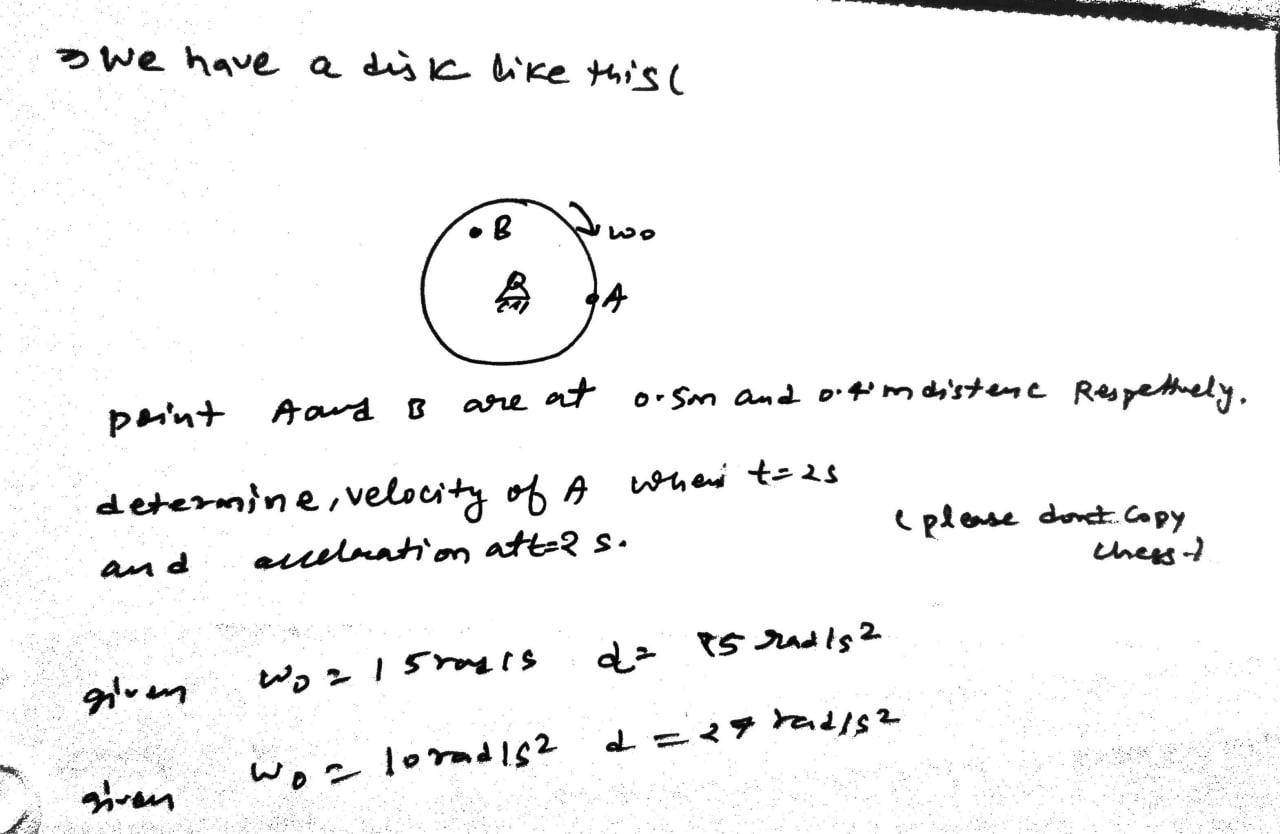 ⇒ We have a disk like this (
B
ω0
A
point A and B are at 0.5m and 0.4m distenc Respettively.
determine, velocity of A when t=2s
and accelaration at t=2 s.
(please dont copy
chegg)
given ω0 = 15 rad/s α= rad/s2
given ω0 = 10 rad/s2 α = rad/s2